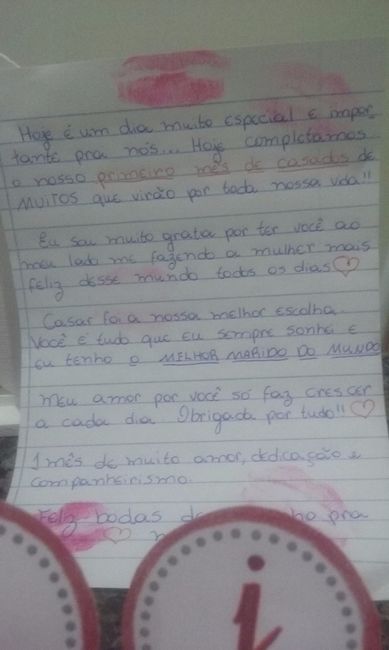 Hoje é um dia muito especial e impor-
tante pra nós... Hoje completamos
o nosso primeiro mês de casados de
MUITOS que virão por toda nossa vida!!
Eu sou muito grata por ter você ao
meu lado me fazendo a mulher mais
feliz desse mundo todos os dias
Casar foi a nossa melhor escolha.
Você é tudo que eu sempre sonhei e
eu tenho o MELHOR MARIDO DO MUNDO
Meu amor por você só faz crescer
a cada dia. Obrigada por tudo!!
1 mês de muito amor, dedicação e
companheirismo.
Feliz bodas de pra
i